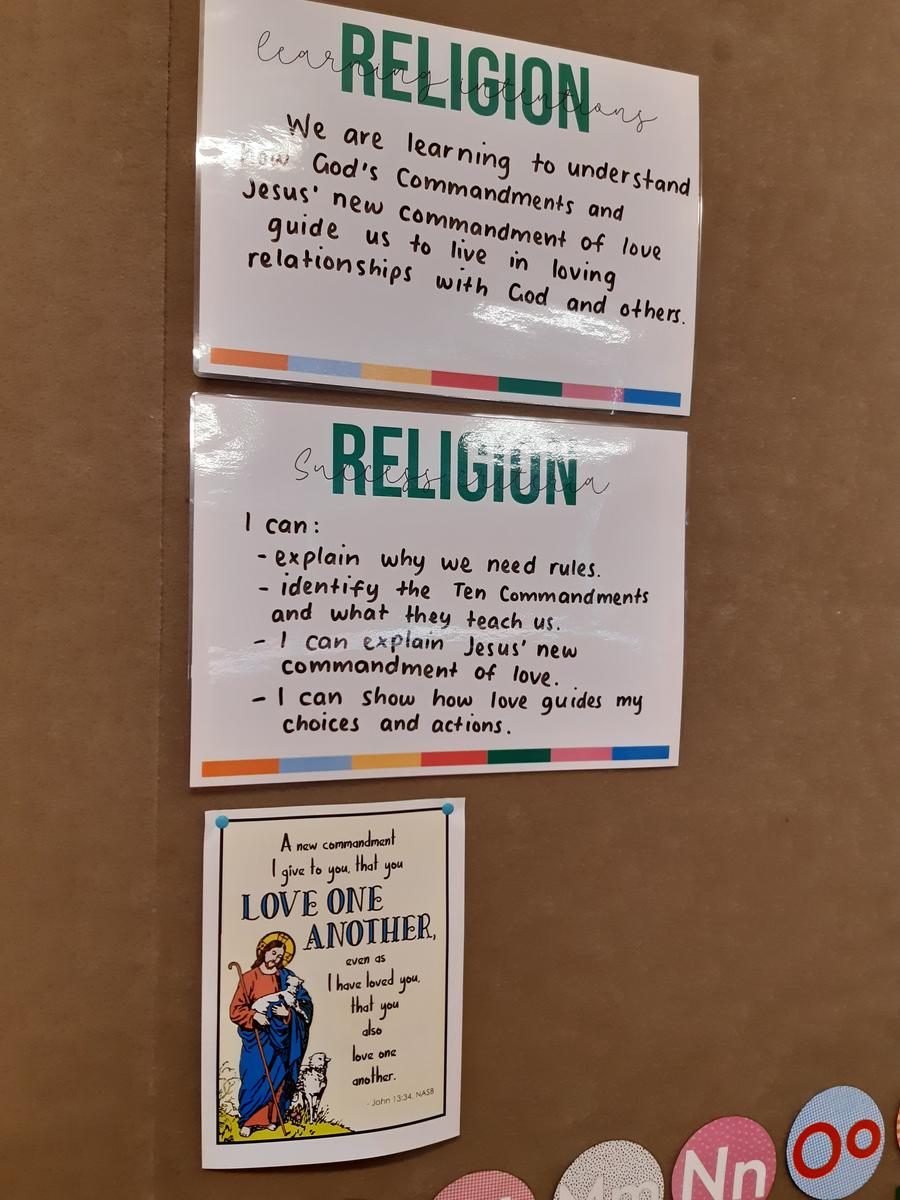 RELIGION
learning intentions
We are learning to understand
how God's Commandments and
Jesus' new commandment of love
guide us to live in loving
relationships with God and others.
RELIGION
Success criteria
I can:
- explain why we need rules.
- identify the Ten Commandments
and what they teach us.
- I can explain Jesus' new
commandment of love.
- I can show how love guides my
choices and actions.
A new commandment
I give to you, that you
LOVE ONE
ANOTHER,
even as
I have loved you,
that you
also
love one
another.
- John 13:34, NASB
Mm
Nn
Oo